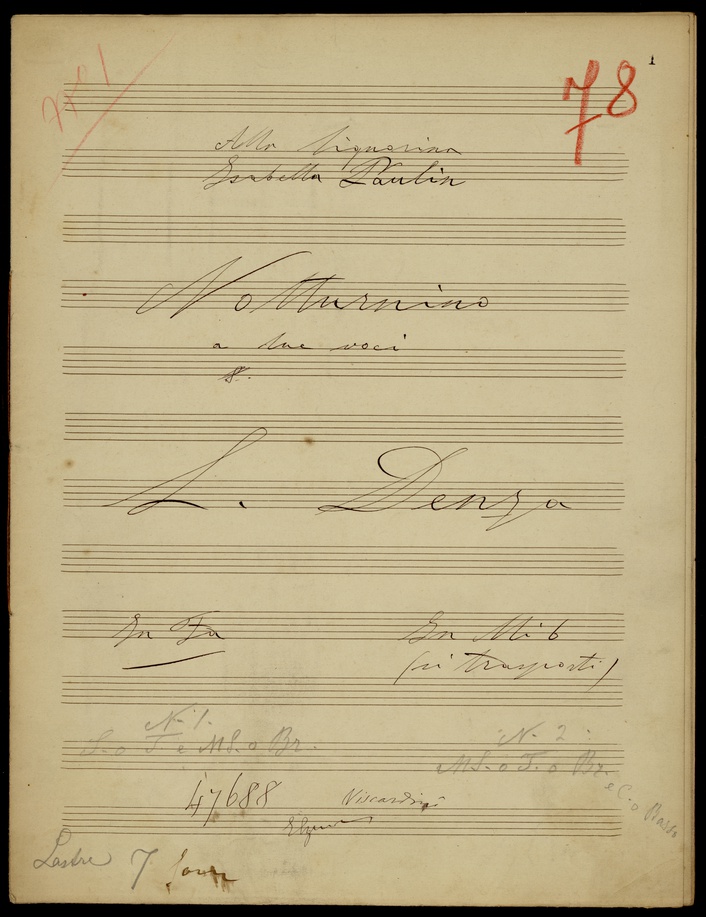 1
78
N° 1
Alla Signorina
Isabella Paulin
Notturnino
a due voci
L. Denza
In Fa
In Mi b
(si trasporti)
N. 1.
S. o T. e MS. o Br.
N. 2
MS. o T. o Br.
e C. o Basso
47688
Lastre 7